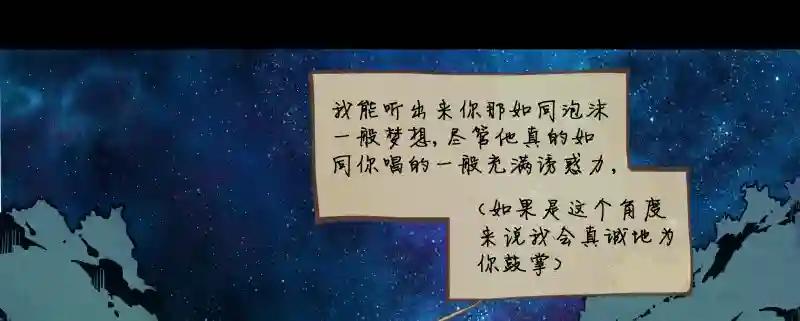 我能听出来你那如同泡沫
一般梦想，尽管他真的如
同你唱的一般充满诱惑力。
（如果是这个角度
来说我会真诚地为
你鼓掌）